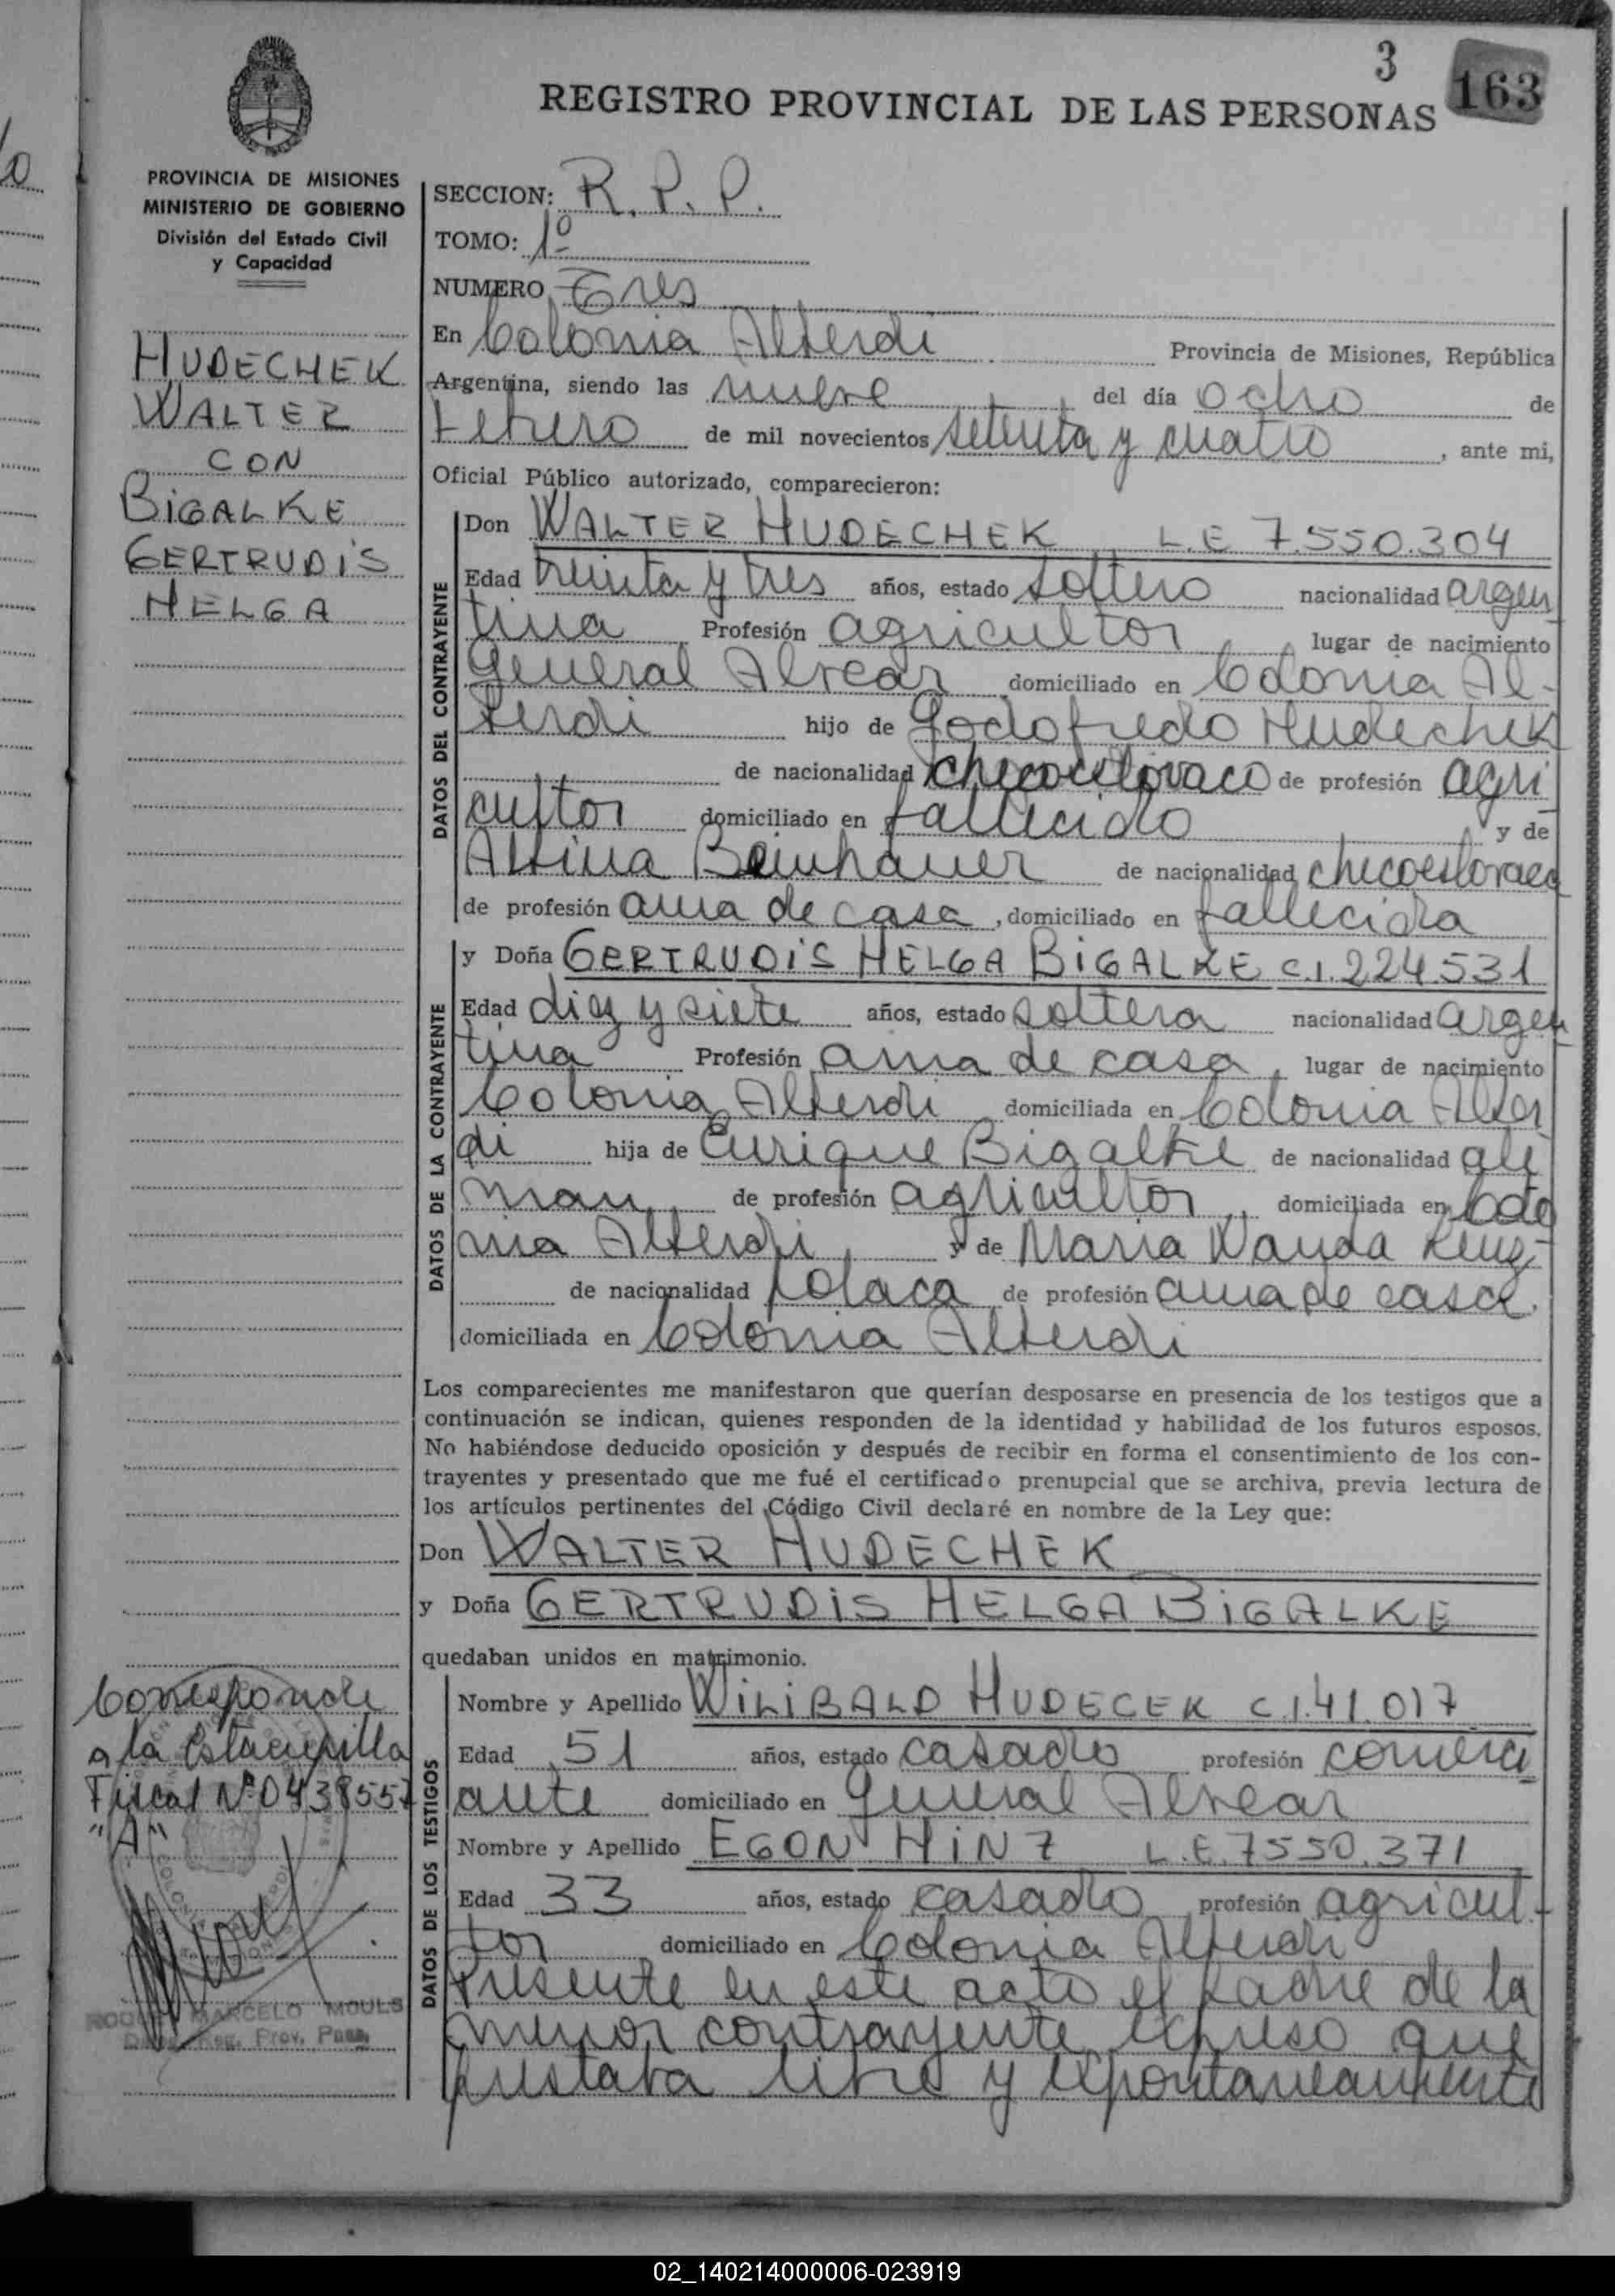 3
163
REGISTRO PROVINCIAL DE LAS PERSONAS
PROVINCIA DE MISIONES
MINISTERIO DE GOBIERNO
División del Estado Civil
y Capacidad
HUDECHEK
WALTER
CON
BIGALKE
GERTRUDIS
HELGA
SECCION: R. P. P.
TOMO: 1º
NUMERO Tres
En Colonia Alberdi Provincia de Misiones, República
Argentina, siendo las nueve del día ocho de
Febrero de mil novecientos setenta y cuatro, ante mi,
Oficial Público autorizado, comparecieron:
DATOS DEL CONTRAYENTE
Don WALTER HUDECHEK L.E 7.550.304
Edad treinta y tres años, estado soltero nacionalidad argen
tina Profesión agricultor, lugar de nacimiento
General Alvear domiciliado en Colonia Al-
berdi hijo de Godofredo Hudechek
de nacionalidad checoeslovaco de profesión agri
cultor domiciliado en fallecido y de
Albina Beinhauer de nacionalidad checoeslovaca
de profesión ama de casa, domiciliado en fallecida
DATOS DE LA CONTRAYENTE
y Doña GERTRUDIS HELGA BIGALKE C.I. 224.531
Edad diez y siete años, estado soltera nacionalidad argen
tina Profesión ama de casa, lugar de nacimiento
Colonia Alberdi domiciliada en Colonia Alber
di hija de Enrique Bigalke de nacionalidad ale
man, de profesión agricultor, domiciliada en Colo
nia Alberdi, y de Maria Wanda
de nacionalidad polaca de profesión ama de casa,
domiciliada en Colonia Alberdi
Los comparecientes me manifestaron que querían desposarse en presencia de los testigos que a
continuación se indican, quienes responden de la identidad y habilidad de los futuros esposos.
No habiéndose deducido oposición y después de recibir en forma el consentimiento de los con-
trayentes y presentado que me fué el certificado prenupcial que se archiva, previa lectura de
los artículos pertinentes del Código Civil declaré en nombre de la Ley que:
Don WALTER HUDECHEK
y Doña GERTRUDIS HELGA BIGALKE
quedaban unidos en matrimonio.
DATOS DE LOS TESTIGOS
Nombre y Apellido WILIBALD HUDECEK C.I. 41.017
Edad 51 años, estado casado profesión comerci
ante domiciliado en General Alvear
Nombre y Apellido EGON HINZ L.E. 7550.371
Edad 33 años, estado casado profesión agricul-
tor domiciliado en Colonia Alberdi
Presente en este acto el padre de la
menor contrayente expreso que
prestaba libre y expontaneamente
Corresponde
a la Estampilla
Fiscal Nº 0438557
"A"
MARCELO MOULS
Reg. Prov. Pers.
02_140214000006-023919